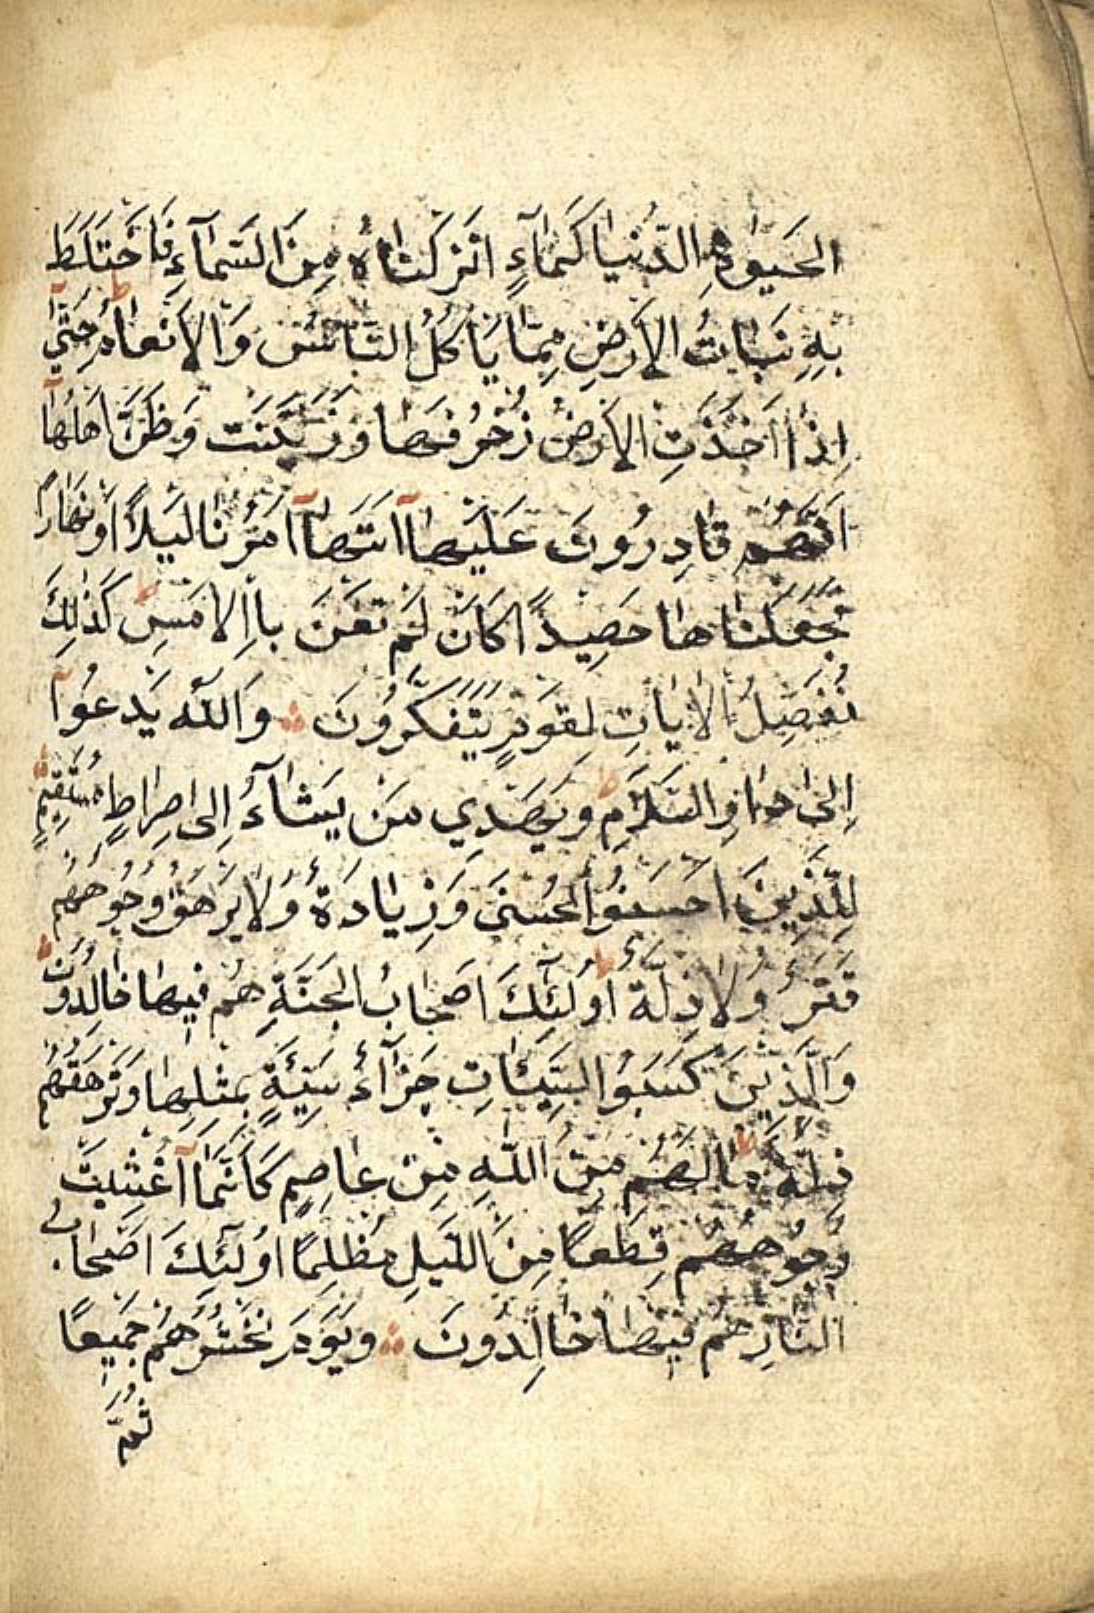 الحَيٰوةِ الدُّنْيَا كَمَآءٍ اَنْزَلْنَاهُ مِنَ السَّمَآءِ فَاخْتَلَطَ
بِهِ نَبَاتُ الْاَرْضِ مِمَّا يَأكُلُ النَّاسُ وَالْاَنْعَامُ حَتّٰى
اِذَا اَخَذَتِ الْاَرْضُ زُخْرُفَهَا وَازَّيَّنَتْ وَظَنَّ اَهْلُهَا
اَنَّهُمْ قَادِرُونَ عَلَيْهَآ اَتٰهَآ اَمْرُنَا لَيْلًا اَوْ نَهَارًا
فَجَعَلْنَاهَا حَصِيدًا كَاَنْ لَمْ تَغْنَ بِاالْاَمْسِ كَذٰلِكَ
نُفَصِّلُ الْاٰيَاتِ لِقَوْمٍ يَتَفَكَّرُونَ ۞ وَاللّٰهُ يَدْعُوآ
اِلٰى دَارِ السَّلَامِ وَيَهْدِي مَنْ يَشَآءُ اِلٰى صِرَاطٍ مُسْتَقِيمٍ
لِلَّذِينَ اَحْسَنُوا الْحُسْنٰى وَزِيَادَةٌ وَلَا يَرْهَقُ وُجُوهَهُمْ
قَتَرٌ وَلَا ذِلَّةٌ اُولٰٓئِكَ اَصْحَابُ الْجَنَّةِ هُمْ فِيهَا خَالِدُونَ
وَالَّذِينَ كَسَبُوا السَّيِّئَاتِ جَزَآءُ سَيِّئَةٍ بِمِثْلِهَا وَتَرْهَقُهُمْ
ذِلَّةٌ مَا لَهُمْ مِنَ اللّٰهِ مِنْ عَاصِمٍ كَاَنَّمَآ اُغْشِيَتْ
وُجُوهُهُمْ قِطَعًا مِنَ اللَّيْلِ مُظْلِمًا اُولٰٓئِكَ اَصْحَابُ
النَّارِ هُمْ فِيهَا خَالِدُونَ ۞ وَيَوْمَ نَحْشُرُهُمْ جَمِيعًا
ثُمَّ